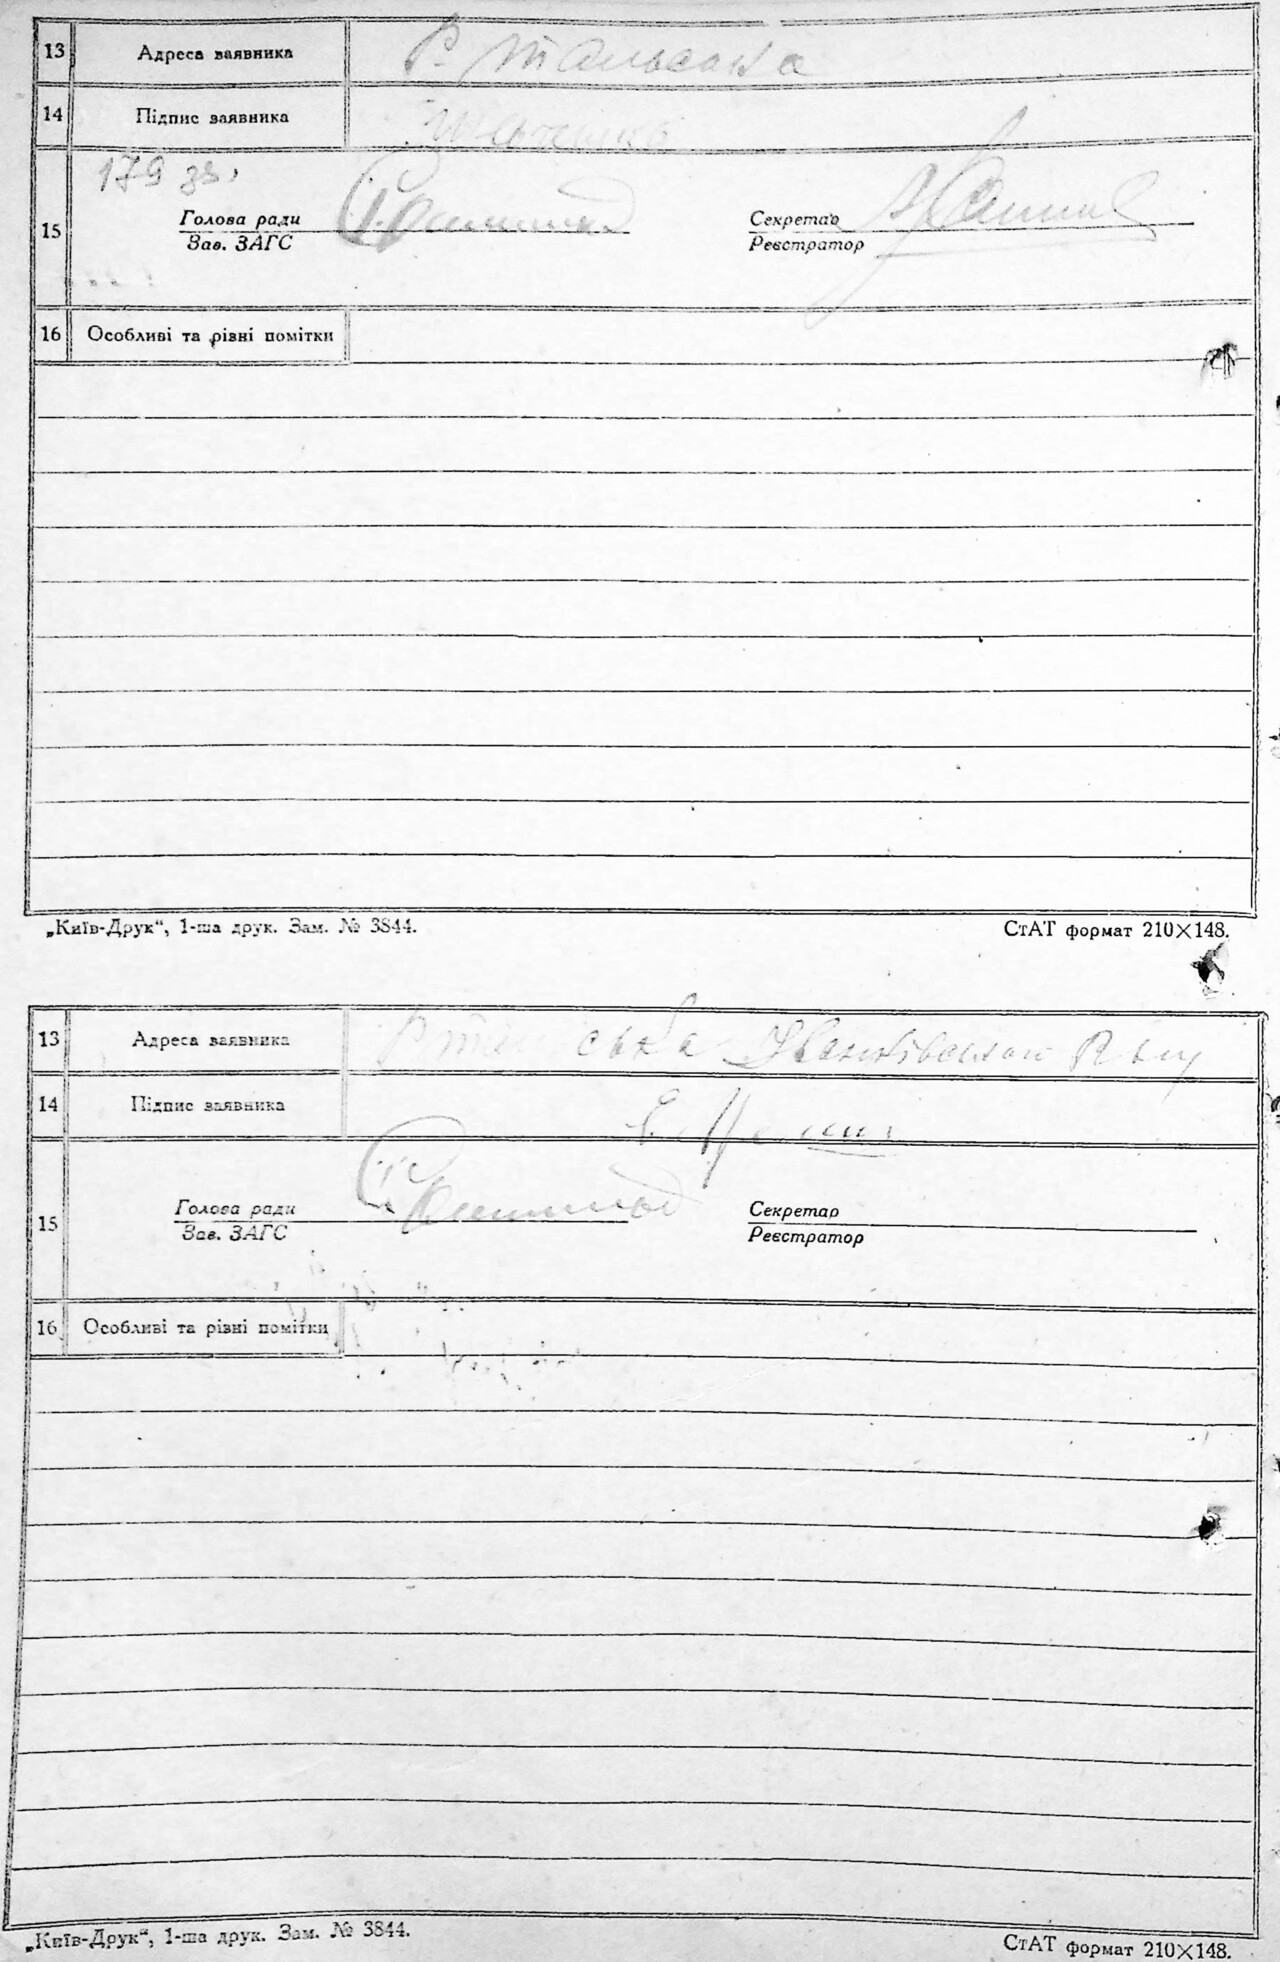 13 Адреса заявника Р-Тальська
14 Підпис заявника
179 зв.
15 Голова ради Секретар
Зав. ЗАГС Реєстратор
16 Особливі та різні помітки
„Київ-Друк“, 1-ша друк. Зам. № 3844. СтАТ формат 210×148.
13 Адреса заявника ська Іванківськой Р-ну
14 Підпис заявника
15 Голова ради Секретар
Зав. ЗАГС Реєстратор
16 Особливі та різні помітки
„Київ-Друк“, 1-ша друк. Зам. № 3844. СтАТ формат 210×148.